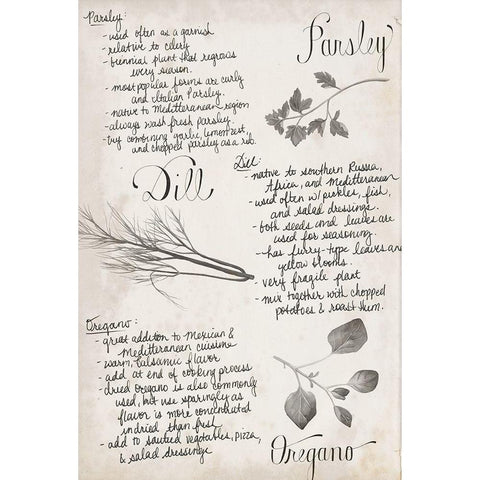 Parsley:
- used often as a garnish
- relative to celery
- biennial plant that regrows
every season.
- most popular forms are curly
and Italian Parsley.
- native to Meditteranean region
- always wash fresh parsley.
- try combining garlic, lemon zest,
and chopped parsley as a rub.
Parsley
Dill
Dill:
- native to southern Russia,
Africa, and Meditteranean
- used often w/ pickles, fish,
and salad dressings.
- both seeds and leaves are
used for seasoning.
- has furry-type leaves and
yellow blooms.
- very fragile plant
- mix together with chopped
potatoes & roast them.
Oregano:
- great addition to Mexican &
Meditteranean cuisine
- warm, balsamic flavor
- add at end of cooking process
- dried oregano is also commonly
used, but use sparingly as
flavor is more concentrated
in dried than fresh
- add to sauteed vegetables, pizza,
& salad dressings
Oregano